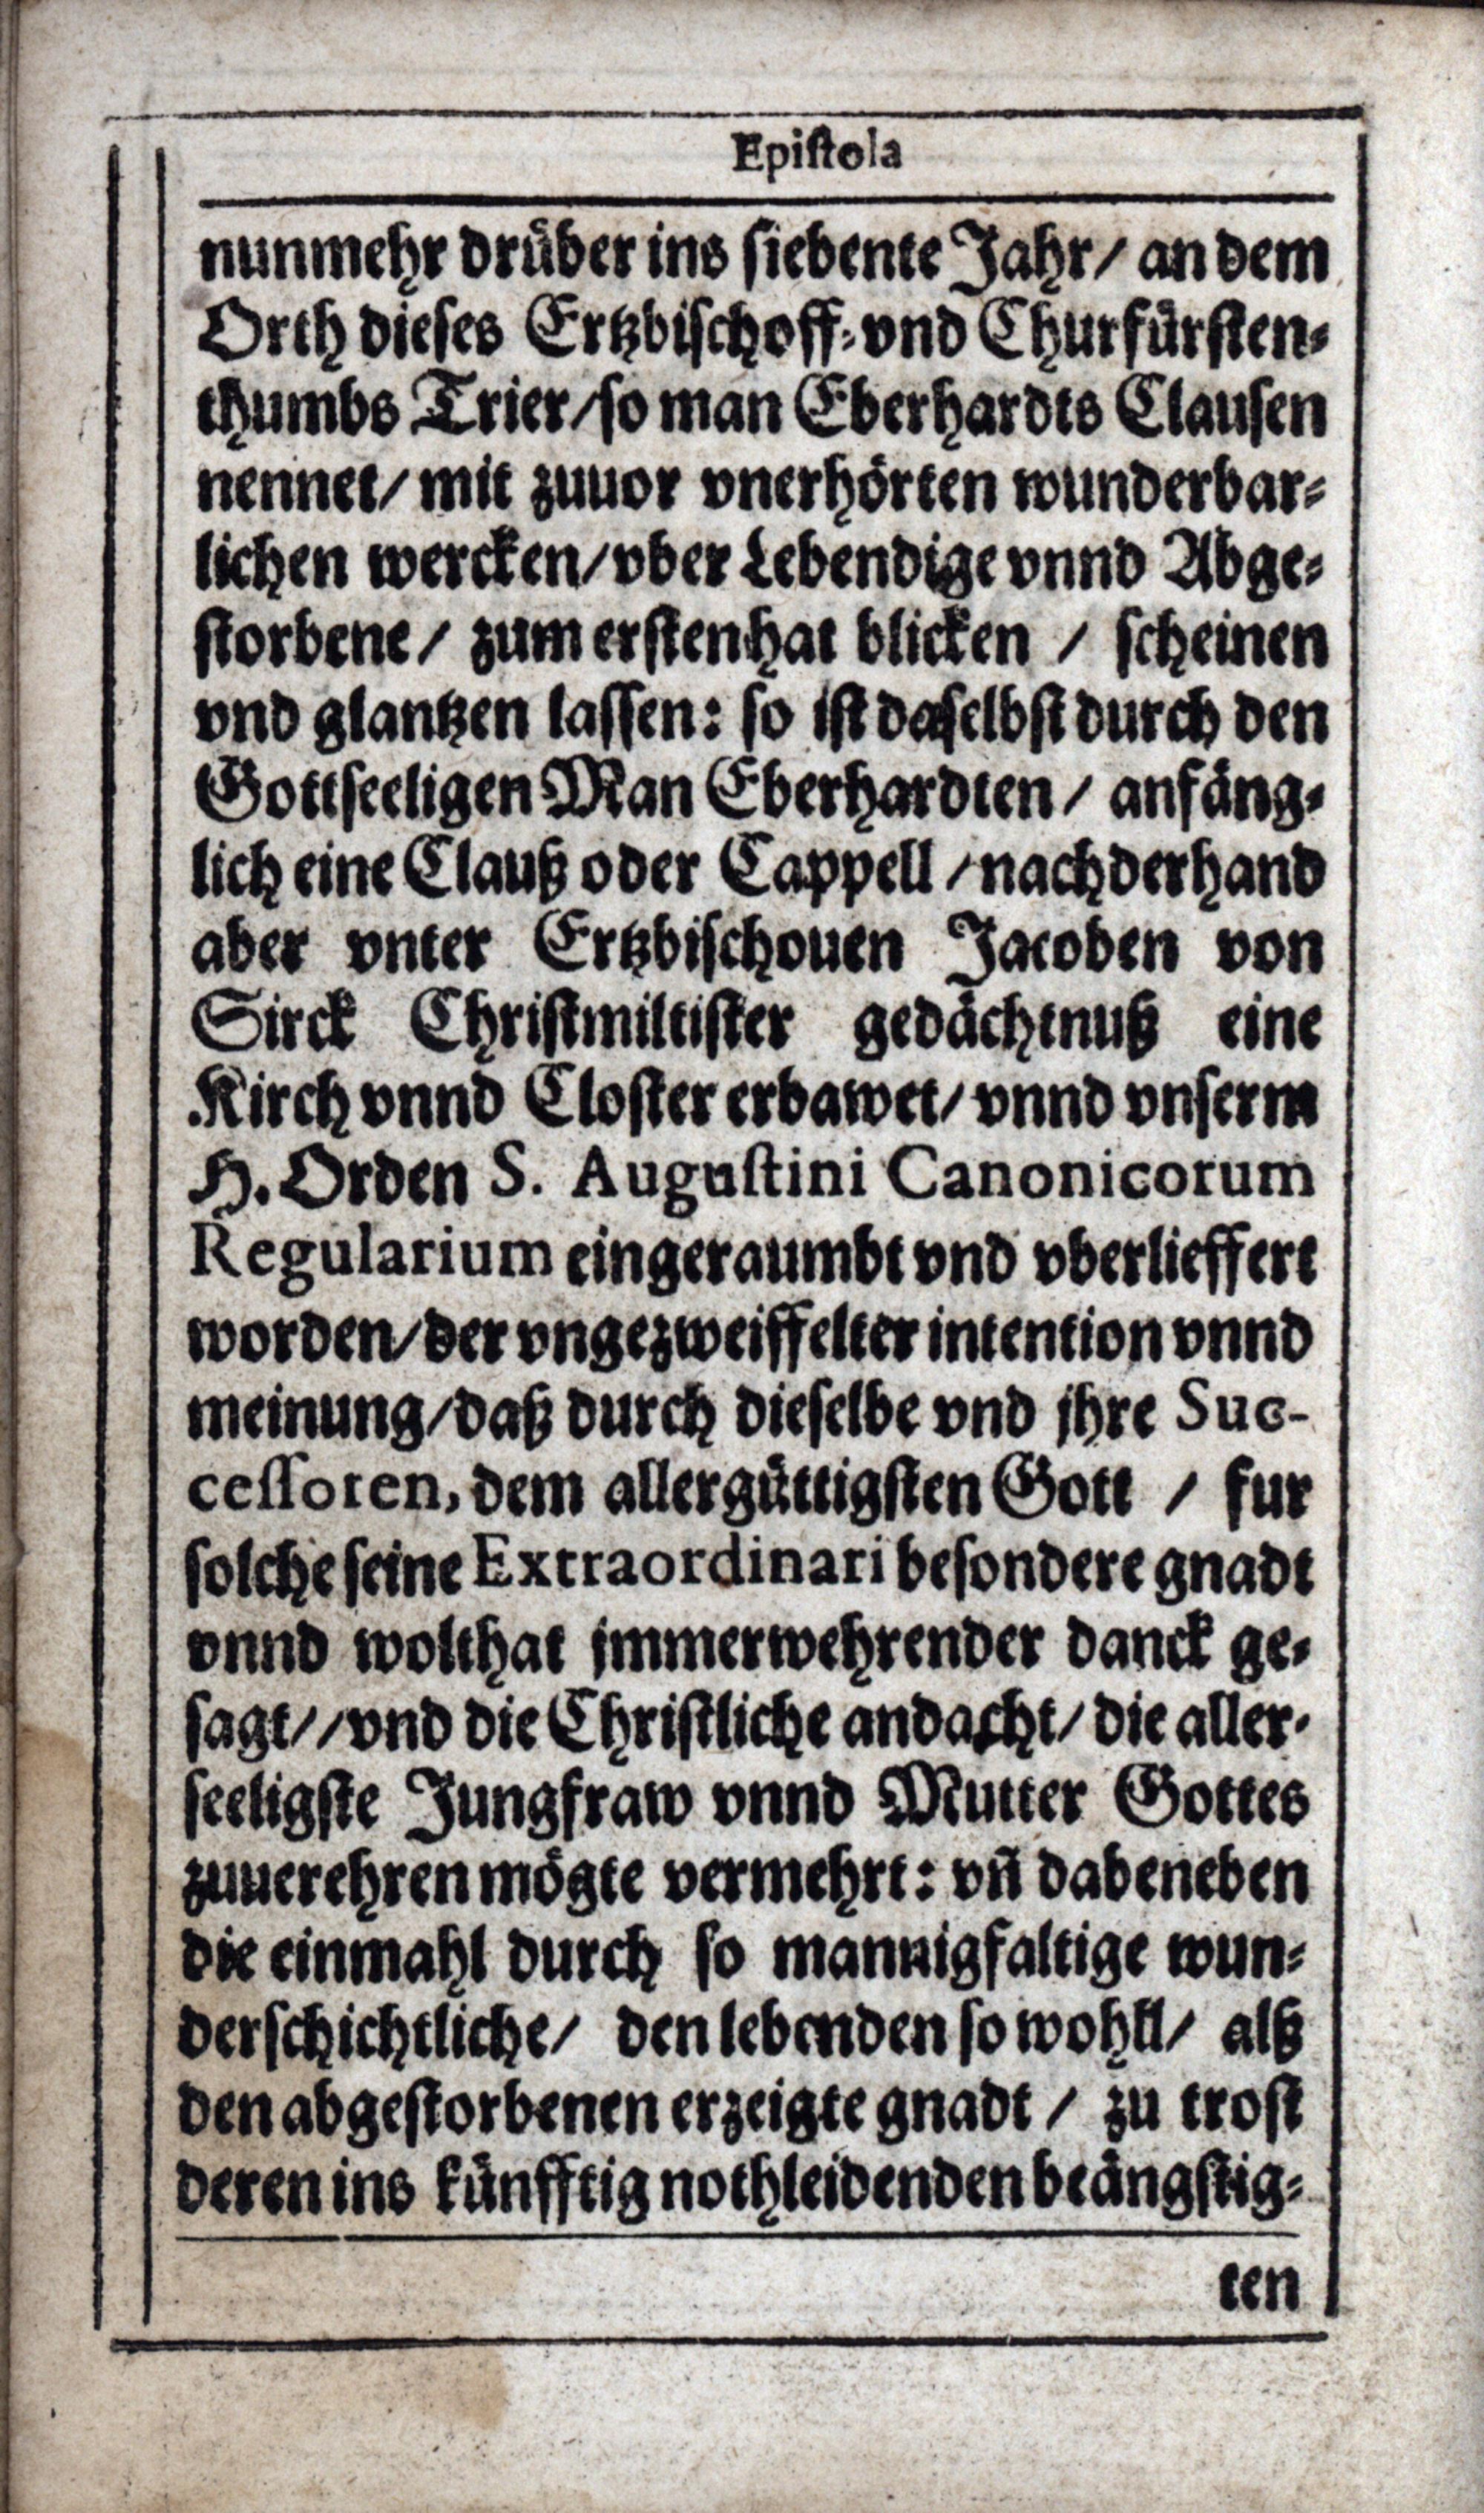 Epiſtola
nunmehr drüber ins ſiebente Jahr/ an dem
Orth dieſes Ertzbiſchoff-vnd Churfürſten-
thumbs Trier/ſo man Eberhardts Clauſen
nennet/ mit zuuor vnerhörten wunderbar-
lichen wercken/vber Lebendige vnnd Abge-
ſtorbene/ zum erſten hat blicken / ſcheinen
vnd glantzen laſſen: ſo iſt daſelbſt durch den
Gottſeeligen Man Eberhardten/ anfäng-
lich eine Clauß oder Cappell /nach der hand
aber vnter Ertzbiſchouen Jacoben von
Sirck Chriſtmiltiſter gedächtnuß eine
Kirch vnnd Cloſter erbawet/ vnnd vnſerm
H. Orden S. Auguſtini Canonicorum
Regularium eingeraumbt vnd vberlieffert
worden/der vngezweiffelter intention vnnd
meinung/daß durch dieſelbe vnd jhre Suc-
ceſſoren, dem allergüttigſten Gott / fur
ſolche ſeine Extraordinari beſondere gnadt
vnnd wolthat jmmerwehrender danck ge-
ſagt//vnd die Chriſtliche andacht/ die aller-
ſeeligſte Jungfraw vnnd Mutter Gottes
zuuerehren mögte vermehrt: vn̄ dabeneben
die einmahl durch ſo mannigfaltige wun-
derſchichtliche/ den lebenden ſo wohll/ alß
den abgeſtorbenen erzeigte gnadt / zu troſt
deren ins künfftig nothleidenden beängſtig-
ten